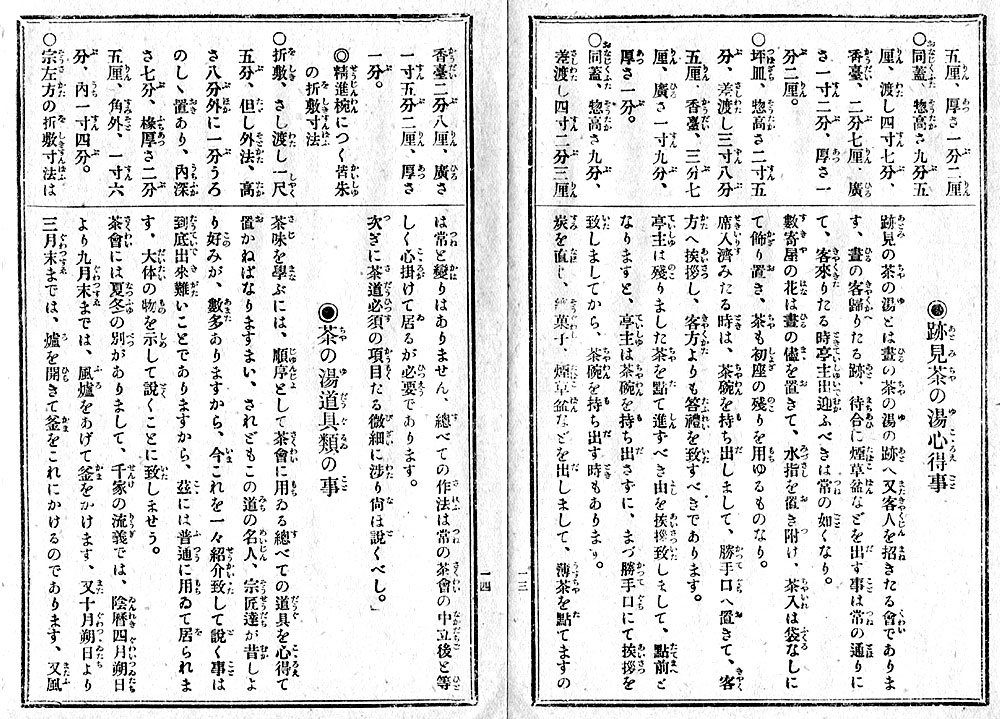 五厘、厚さ一分二厘
○同蓋、惣高さ九分五
厘、渡し四寸七分、
香臺、二分七厘、廣
さ一寸二分、厚さ一
分二厘。
○坪皿、惣高さ二寸五
分、差渡し三寸八分
五厘、香臺、三分七
厘、廣さ一寸九分、
厚さ一分。
○同蓋、惣高さ九分、
差渡し四寸二分三厘
◉跡見茶の湯心得事
跡見の茶の湯とは晝の茶の湯の跡へ又客人を招きたる會でありま
す、晝の客歸りたる跡、待合に煙草盆などを出す事は常の通りに
て、客來りたる時亭主出迎ふべきは常の如くなり。
數寄屋の花は晝の儘を置きて、水指を置き附け、茶入は袋なしに
て飾り置き、茶も初座の殘りを用ゆるものなり。
席入濟みたる時は、茶碗を持ち出しまして、勝手口へ置きて、客
方へ挨拶し、客方よりも答禮を致すべきであります。
亭主は殘りました茶を點て進ずべき由を挨拶致しまして、點前と
なりますと、亭主は茶碗を持ち出さずに、まづ勝手口にて挨拶を
致しましてから、茶碗を持ち出す時もあります。
炭を直し、菓子、煙草盆などを出しまして、薄茶を點てますの
一三
香臺二分八厘、廣さ
一寸五分二厘、厚さ
一分。
◎精進椀につく皆朱
の折敷寸法
○折敷、さし渡し一尺
五分、但し外法、高
さ八分外に一分うろ
のし、置あり、內深
さ七分、椽厚さ二分
五厘、角外、一寸六
分、內一寸四分。
○宗左方の折敷寸法は
は常と變りはありません、總べての作法は常の茶會の中立後と等
しく心掛けて居るが必要であります。
次ぎに茶道必須の項目たる微細に涉り尙ほ說くべし。」
◉茶の湯道具類の事
茶味を學ぶには、順序として茶會に用ゐる總べての道具を心得て
置かねばなりますまい、されどもこの道の名人、宗匠達が昔しよ
り好みが、數多ありますから、今これを一々紹介致して說く事は
到底出來難いことでありますから、玆には普通に用ゐて居られま
す、大体の物を示して說くことに致しませう。
茶會には夏冬の別がありまして、千家の流義では、陰曆四月朔日
より九月末までは、風爐をあげて釜をかけます、又十月朔日より
三月末までは、爐を開きて釜をこれにかけるのであります、又風
一四